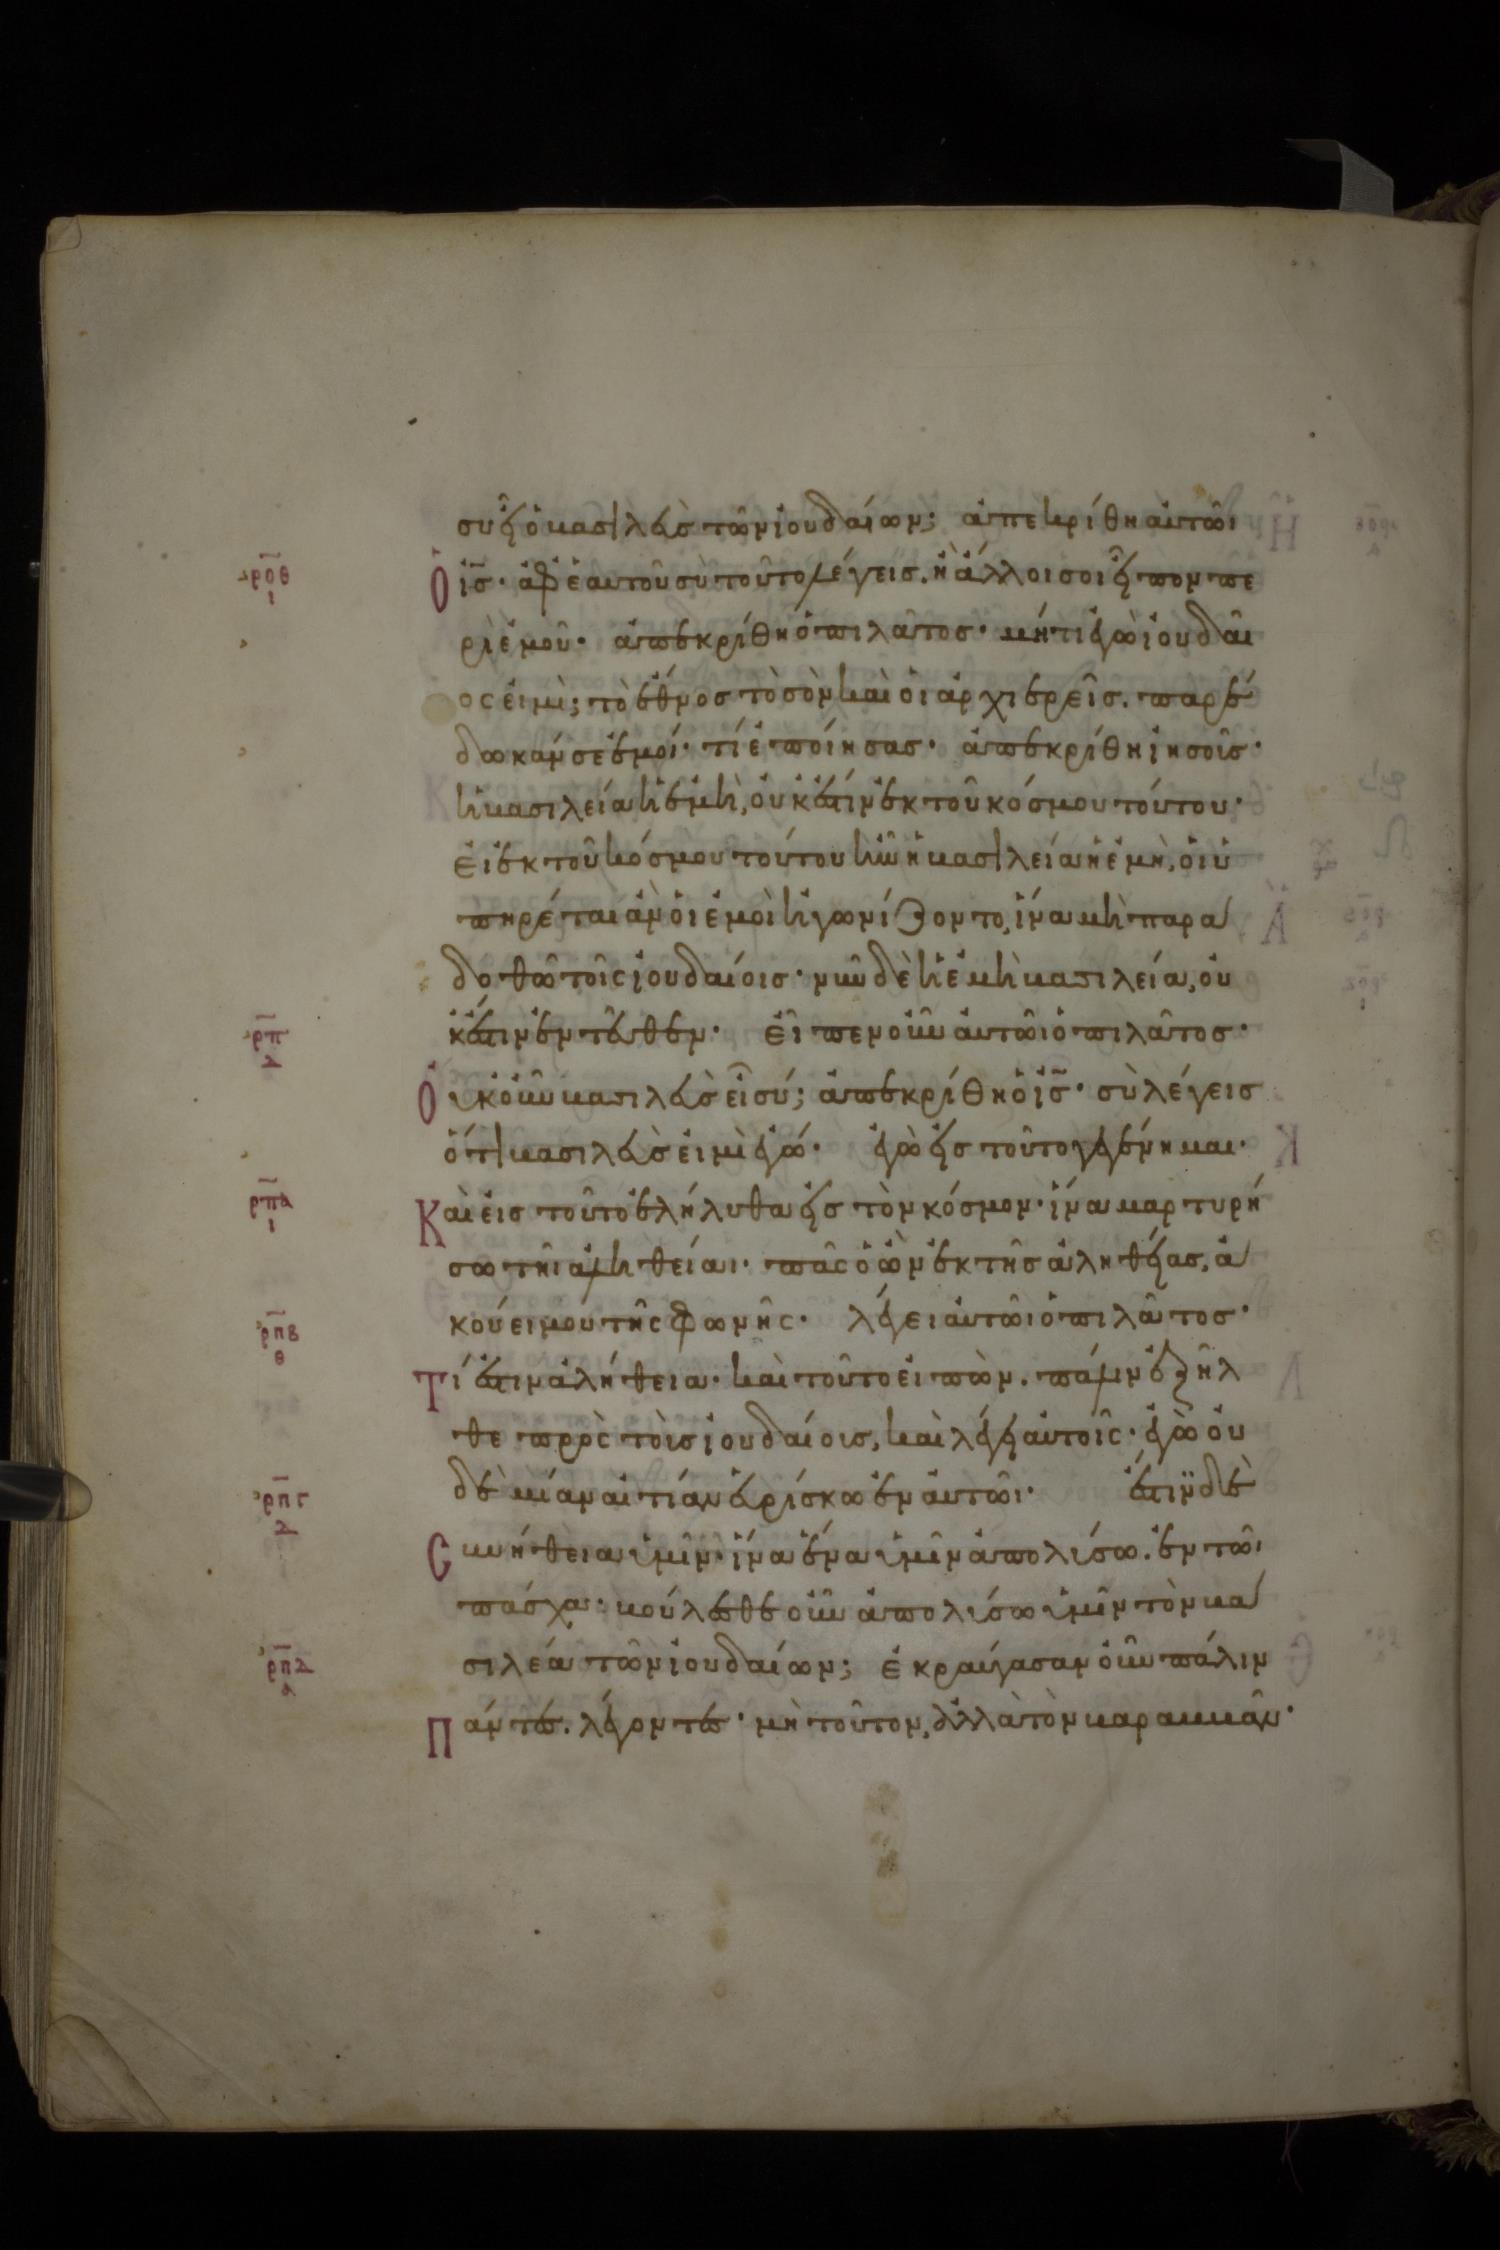 συ εἶ ὁ βασιλεὺς τῶν ἰουδαίων; ἀπεκρίθη αὐτῶι
ροθ ι
Ὁ ἰς̅· ἀφ' ἑαυτοῦ σὺ τοῦτο λέγεις. ἢ ἄλλοι σοι εἶπον πε
ρὶ ἐμοῦ· ἀπεκρίθη ὁ πιλᾶτος· μήτι ἐγὼ ἰουδαῖ
ος εἰμὶ; τὸ ἔθνος τὸ σὸν καὶ οἱ ἀρχιερεῖς. παρέ
δωκάν σε ἐμοί· τί ἐποίησας· ἀπεκρίθη ἰησοῦς·
ἡ βασιλεία ἡ ἐμὴ, οὐκ ἔστιν ἐκ τοῦ κόσμου τούτου·
εἰ ἐκ τοῦ κόσμου τούτου ἦν ἡ βασιλεία ἡ ἐμὴ, οἱ ὑ
πηρέται ἂν οἱ ἐμοὶ ἠγωνίζοντο, ἵνα μὴ παρα
δοθῶ τοῖς ἰουδαίοις· νῦν δὲ ἡ ἐμὴ βασιλεία, οὐ
ρπ δ
κ ἔστιν ἐντεῦθεν· εἶπεν οὖν αὐτῶι ὁ πιλᾶτος·
Ὀυκοῦν βασιλεὺς εἶ σύ; ἀπεκρίθη ὁ ἰς̅· σὺ λέγεις
ὅτι βασιλεὺς εἰμὶ ἐγώ· ἐγὼ εἰς τοῦτο γεγέννημαι·
ρπα ι
Καὶ εἰς τοῦτο ἐλήλυθα εἰς τὸν κόσμον· ἵνα μαρτυρή
σω τῆι ἀληθείαι· πᾶς ὁ ὢν ἐκ τῆς ἀληθείας, ἀ
ρπβ θ
κούει μου τῆς φωνῆς· λέγει αὐτῶι ὁ πιλᾶτος·
Τί ἔστιν ἀλήθεια· καὶ τοῦτο εἰπὼν. πάλιν ἐξῆλ
θε πρὸς τοὺς ἰουδαίους, καὶ λέγει αὐτοῖς· ἐγὼ οὐ
ρπγ δ
δὲ μίαν αἰτίαν εὑρίσκω ἐν αὐτῶι· ἔστιν δὲ
Συνήθεια ὑμῖν· ἵνα ἕνα ὑμῖν ἀπολύσω. ἐν τῶι
πάσχα· βούλεσθε οὖν ἀπολύσω ὑμῖν τὸν βα
ρπδ α
σιλέα τῶν ἰουδαίων; ἐκραύγασαν οὖν πάλιν
Πάντες. λέγοντες· μὴ τοῦτον, ἀλλὰ τὸν βαραββᾶν·